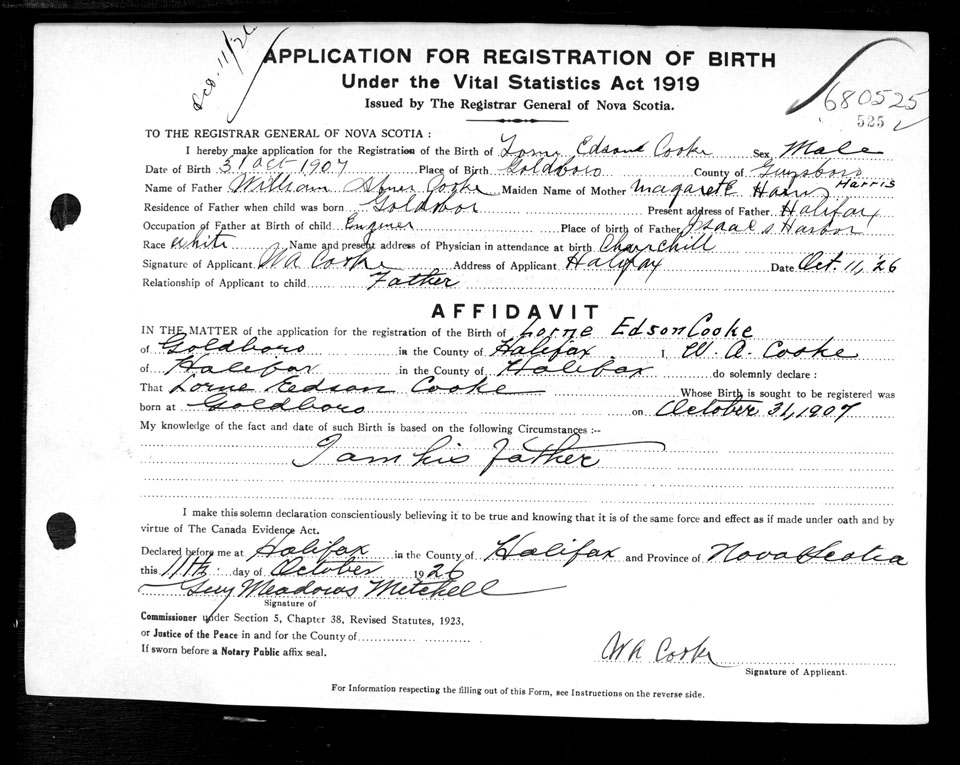 Rcd. 11/26
APPLICATION FOR REGISTRATION OF BIRTH
Under the Vital Statistics Act 1919
Issued by The Registrar General of Nova Scotia.
680525
525
TO THE REGISTRAR GENERAL OF NOVA SCOTIA :
I hereby make application for the Registration of the Birth of Lorne Edson Cooke Sex Male
Date of Birth 31 Oct 1907 Place of Birth Goldboro County of Guysboro
Name of Father William Abner Cooke Maiden Name of Mother Magaret E Harris Harris
Residence of Father when child was born Goldboro Present address of Father Halifax
Occupation of Father at Birth of child Enginer Place of birth of Father Isaac's Harbor
Race White Name and present address of Physician in attendance at birth Churchill
Signature of Applicant W A Cooke Address of Applicant Halifax Date Oct. 11, '26
Relationship of Applicant to child Father
AFFIDAVIT
IN THE MATTER of the application for the registration of the Birth of Lorne Edson Cooke
of Goldboro in the County of Halifax I, W. A. Cooke
of Halifax in the County of Halifax do solemnly declare :
That Lorne Edson Cooke Whose Birth is sought to be registered was
born at Goldboro on October 31, 1907
My knowledge of the fact and date of such Birth is based on the following Circumstances :--
I am his father
I make this solemn declaration conscientiously believing it to be true and knowing that it is of the same force and effect as if made under oath and by
virtue of The Canada Evidence Act.
Declared before me at Halifax in the County of Halifax and Province of Nova Scotia
this 11th day of October 1926
Guy Meadows Mitchell
Signature of
Commissioner under Section 5, Chapter 38, Revised Statutes, 1923,
or Justice of the Peace in and for the County of
If sworn before a Notary Public affix seal.
W A Cooke
Signature of Applicant.
For Information respecting the filling out of this Form, see Instructions on the reverse side.